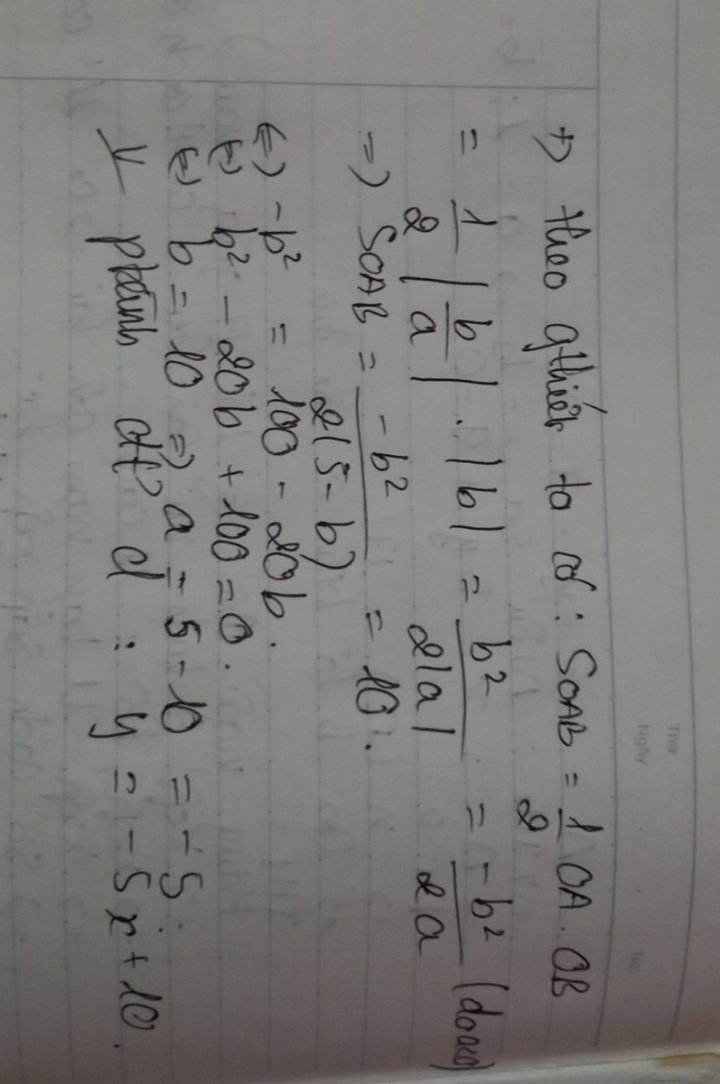 +) theo gthiết ta có: SOAB = 1/2 OA.OB
= 1/2 |b/a| . |b| = b²/2|a| = -b²/2a (do a<0)
=) SOAB = -b²/2(5-b) = 10.
(=) -b² = 100 - 20b.
(=) b² - 20b + 100 = 0.
(=) b = 10 =) a = 5 - 10 = -5.
dt d : y = -5x + 10.
Thứ
Ngày
No.